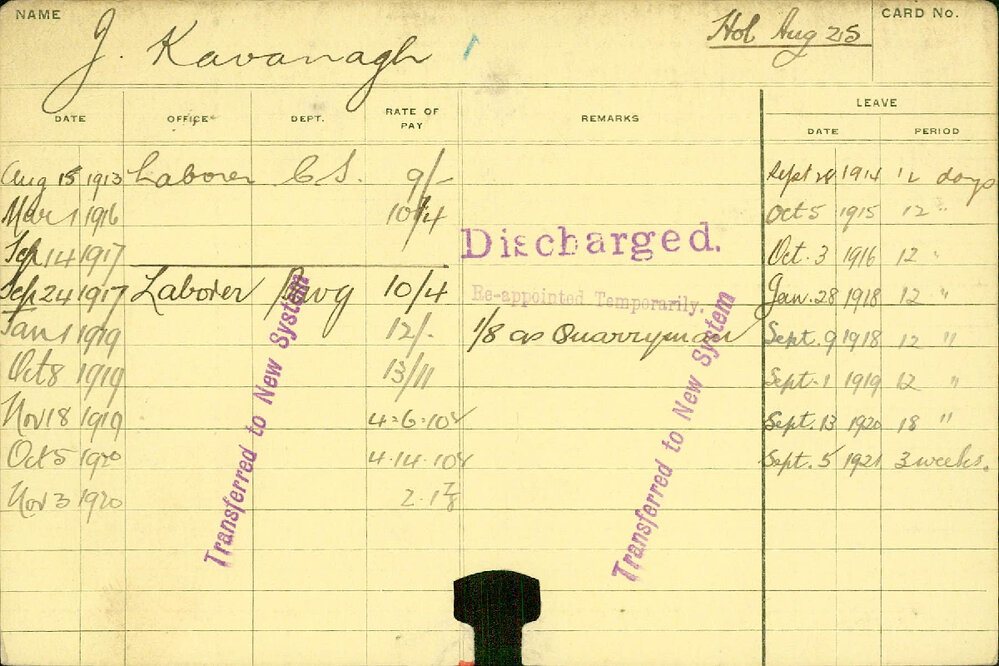 NAME
J. Kavanagh
Hol Aug 25
CARD No.
DATE OFFICE DEPT. RATE OF PAY REMARKS LEAVE
DATE PERIOD
Aug 15 1913 Laborer C.S. 9/- Sept 28 1914 12 days
Mar 1 1916 10/4 Oct 5 1915 12 "
Discharged.
Sep 14 1917 Oct. 3 1916 12 "
Sep 24 1917 Laborer 10/4 Re-appointed Temporarily. Jan. 28 1918 12 "
Jan 1 1919 12/- 1/8 as Quarryman Sept. 9 1918 12 "
Oct 8 1919 13/11 Sept. 1 1919 12 "
Nov 18 1919 Sept. 13 1920 18 "
Oct 5 1920 Sept. 5 1921 3 weeks.
Nov 3 1920
Transferred to New System
Transferred to New System